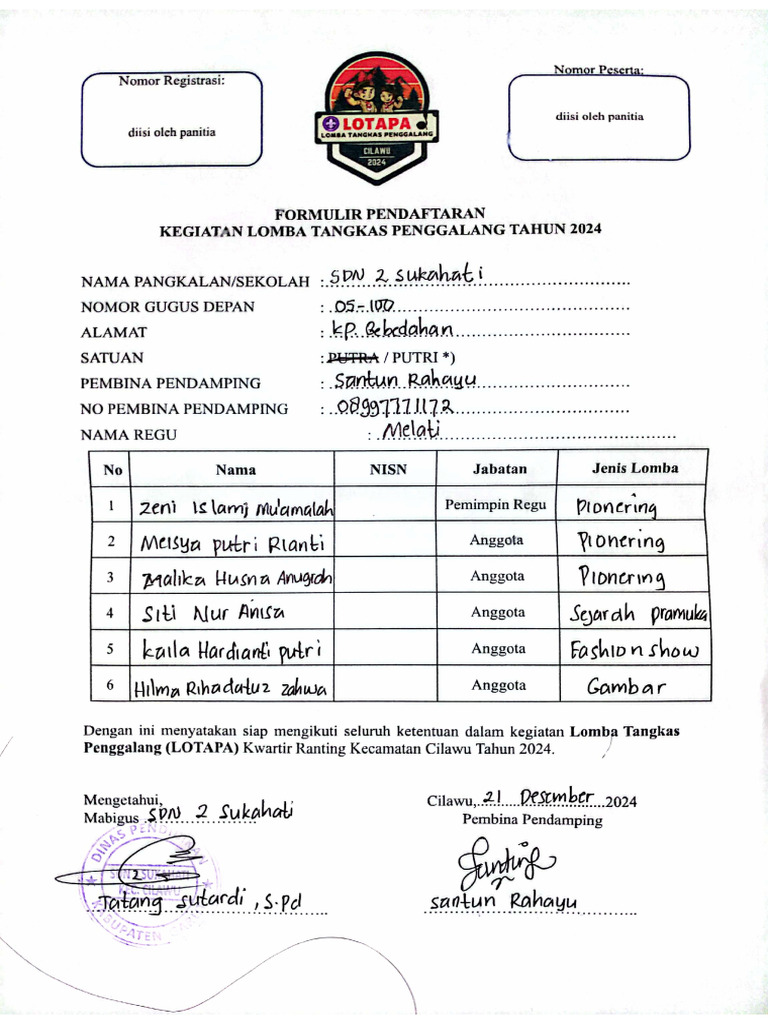 Nomor Registrasi:
diisi oleh panitia
LOTAPA
LOMBA TANGKAS PENGGALANG
CILAWU
2024
Nomor Peserta:
diisi oleh panitia
FORMULIR PENDAFTARAN
KEGIATAN LOMBA TANGKAS PENGGALANG TAHUN 2024
NAMA PANGKALAN/SEKOLAH : SDN 2 Sukahati
NOMOR GUGUS DEPAN : 05-100
ALAMAT : Kp. Bebedahan
SATUAN : PUTRA / PUTRI *)
PEMBINA PENDAMPING : Santun Rahayu
NO PEMBINA PENDAMPING : 08997771172
NAMA REGU : Melati
No Nama NISN Jabatan Jenis Lomba
1 Zeni Islami Mu'amalah Pemimpin Regu Pionering
2 Meisya putri Rianti Anggota Pionering
3 Malika Husna Anugrah Anggota Pionering
4 Siti Nur Anisa Anggota Sejarah pramuka
5 Kaila Hardianti putri Anggota Fashion show
6 Hilma Rihadatuz zahwa Anggota Gambar
Dengan ini menyatakan siap mengikuti seluruh ketentuan dalam kegiatan Lomba Tangkas
Penggalang (LOTAPA) Kwartir Ranting Kecamatan Cilawu Tahun 2024.
Mengetahui,
Mabigus SDN 2 Sukahati
Cilawu, 21 Desember 2024
Pembina Pendamping
DINAS PENDIDIKAN
SDN 2 SUKAHATI
KEC. CILAWU
KABUPATEN
Tatang Sutardi, S.Pd
Santun Rahayu